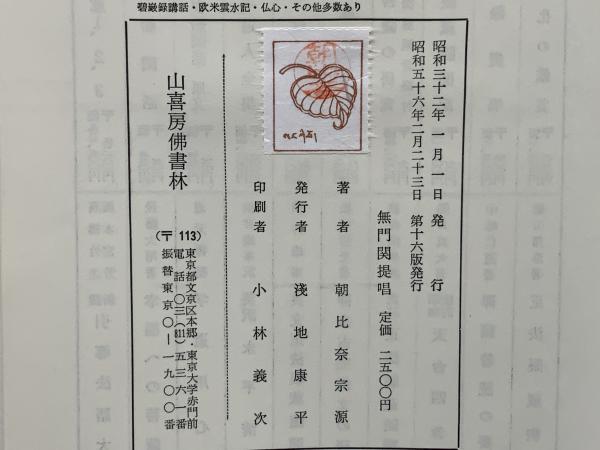 碧巌録講話・欧米雲水記・仏心・その他多数あり
昭和三十二年一月一日　発行
昭和五十六年二月二十三日　第十六版発行
無門関提唱　定価　二五〇〇円
著者　朝比奈宗源
発行者　淺地康平
印刷者　小林義次
山喜房佛書林
（〒113）東京都文京区本郷・東京大学赤門前
電話〇三（811）五三六一番
振替東京〇―一九〇〇番